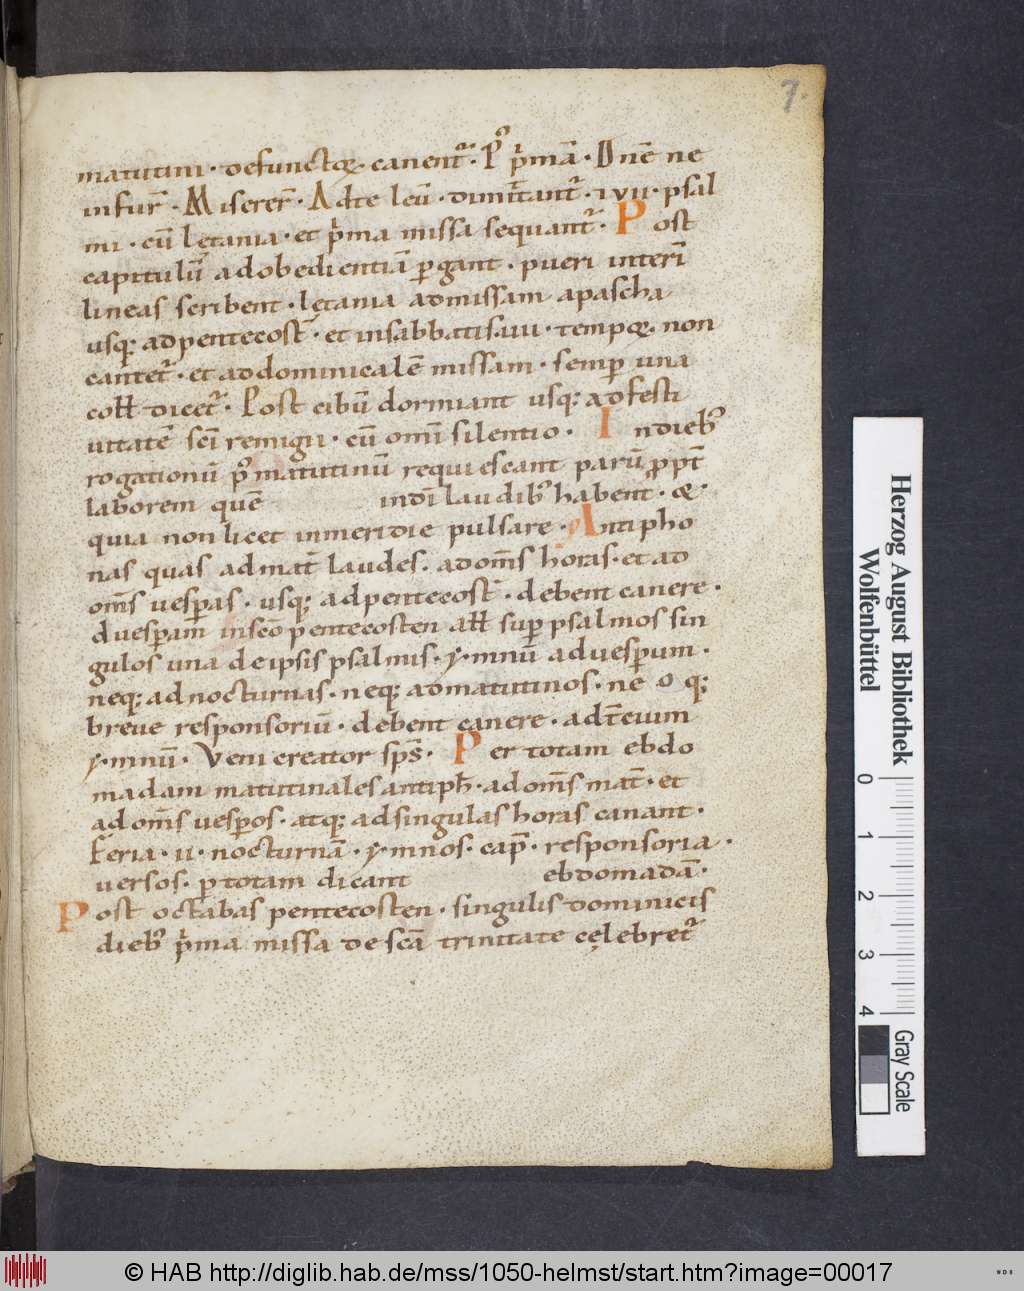 7.
matutini · defunctoꝝ · canent᷑ · P᷒ p̍mā · Dn̄e ne
in fur̄ · Miserer̄ · Ad te leū · dimittant᷑ · & vii · psal
mi · cū lętania · et p̍ma missa sequant᷑ · Post
capitulū ad obedientiā ꝑgant · pueri interī
lineas scribent · lętania ad missam a pascha
usq; ad pentecost̄ · et in sabbatis · iiii · tempoꝝ · non
cantet᷑ · et ad dominicalē missam · semꝑ una
coll̄ dicet᷑ · Post cibū dormiant usq; ad festi
uitatē sc̄i remigii · cū om̄i silentio · In dieb᷒
rogationū p᷒ matutinū requiescant parū ꝓpt̄
laborem quē in dī laudib᷒ habent · &
quia non licet in meridie pulsare · Antipho
nas quas ad mat̄ laudes · ad om̄s horas · et ad
om̄s uesꝑas · usq; ad pentecost̄ · debent canere ·
Ad uesꝑam in sc̄o pentecosten all̄ suꝑ psalmos sin
gulos una de ipsis psalmis · ymnū ad uesꝑum ·
neq; ad nocturnas · neq; ad matutinos · ne q;
breue responsoriū · debent canere · ad t̄cium
ymnū · Veni creator sp̄s · Per totam ebdo
madam matutinales antiph̄ · ad om̄s mat̄ · et
ad om̄s uesꝑos · atq; ad singulas horas canant ·
Feria · ii · nocturnā · ymnos · cap̄ · responsoria ·
uersos · ꝑ totam dicant ebdomadā ·
Post octabas pentecosten · singulis dominicis
dieb᷒ p̍ma missa de sc̄a trinitate cęlebret᷑
Herzog August Bibliothek
Wolfenbüttel
0 1 2 3 4
Gray Scale
© HAB http://diglib.hab.de/mss/1050-helmst/start.htm?image=00017